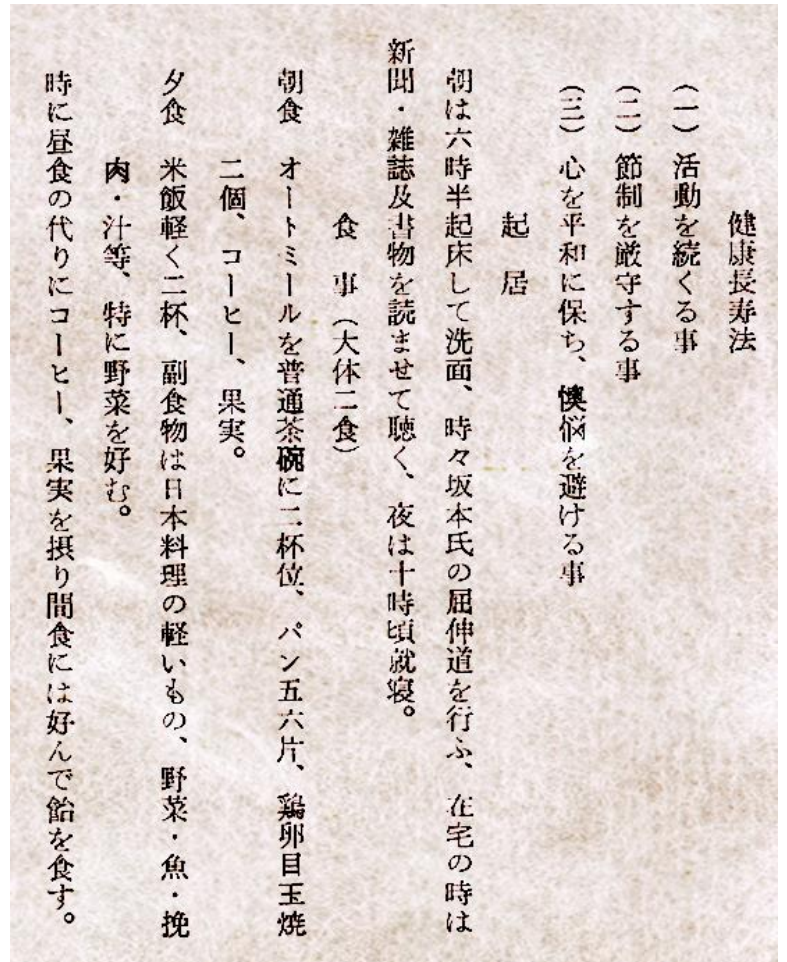 健康長寿法
（一）活動を続くる事
（二）節制を厳守する事
（三）心を平和に保ち、懊悩を避ける事
起居
朝は六時半起床して洗面、時々坂本氏の屈伸道を行ふ、在宅の時は
新聞・雑誌及書物を読ませて聴く、夜は十時頃就寝。
食事（大体二食）
朝食　オートミールを普通茶碗に二杯位、パン五六片、鶏卵目玉焼
二個、コーヒー、果実。
夕食　米飯軽く二杯、副食物は日本料理の軽いもの、野菜・魚・挽
肉・汁等、特に野菜を好む。
時に昼食の代りにコーヒー、果実を摂り間食には好んで飴を食す。